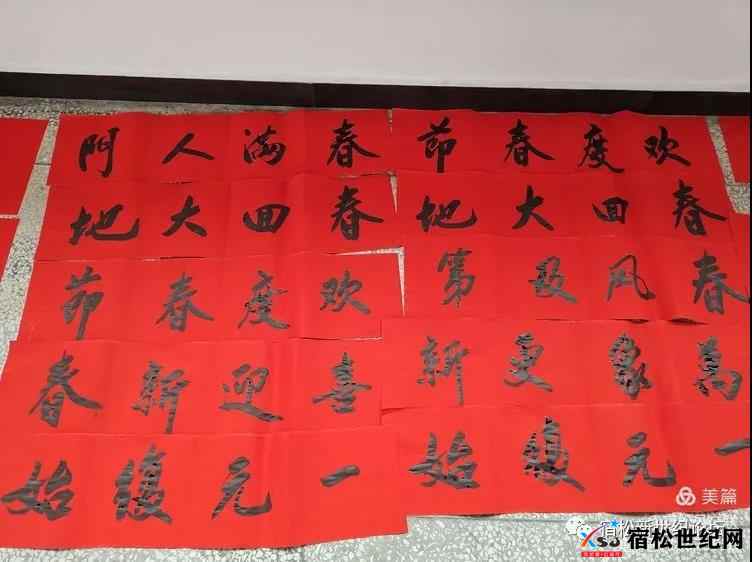 春满人門
欢度春节
春回大地
春回大地
欢度春节
春风及第
喜迎新春
萬象更新
一元復始
一元復始
美篇
宿松世纪网